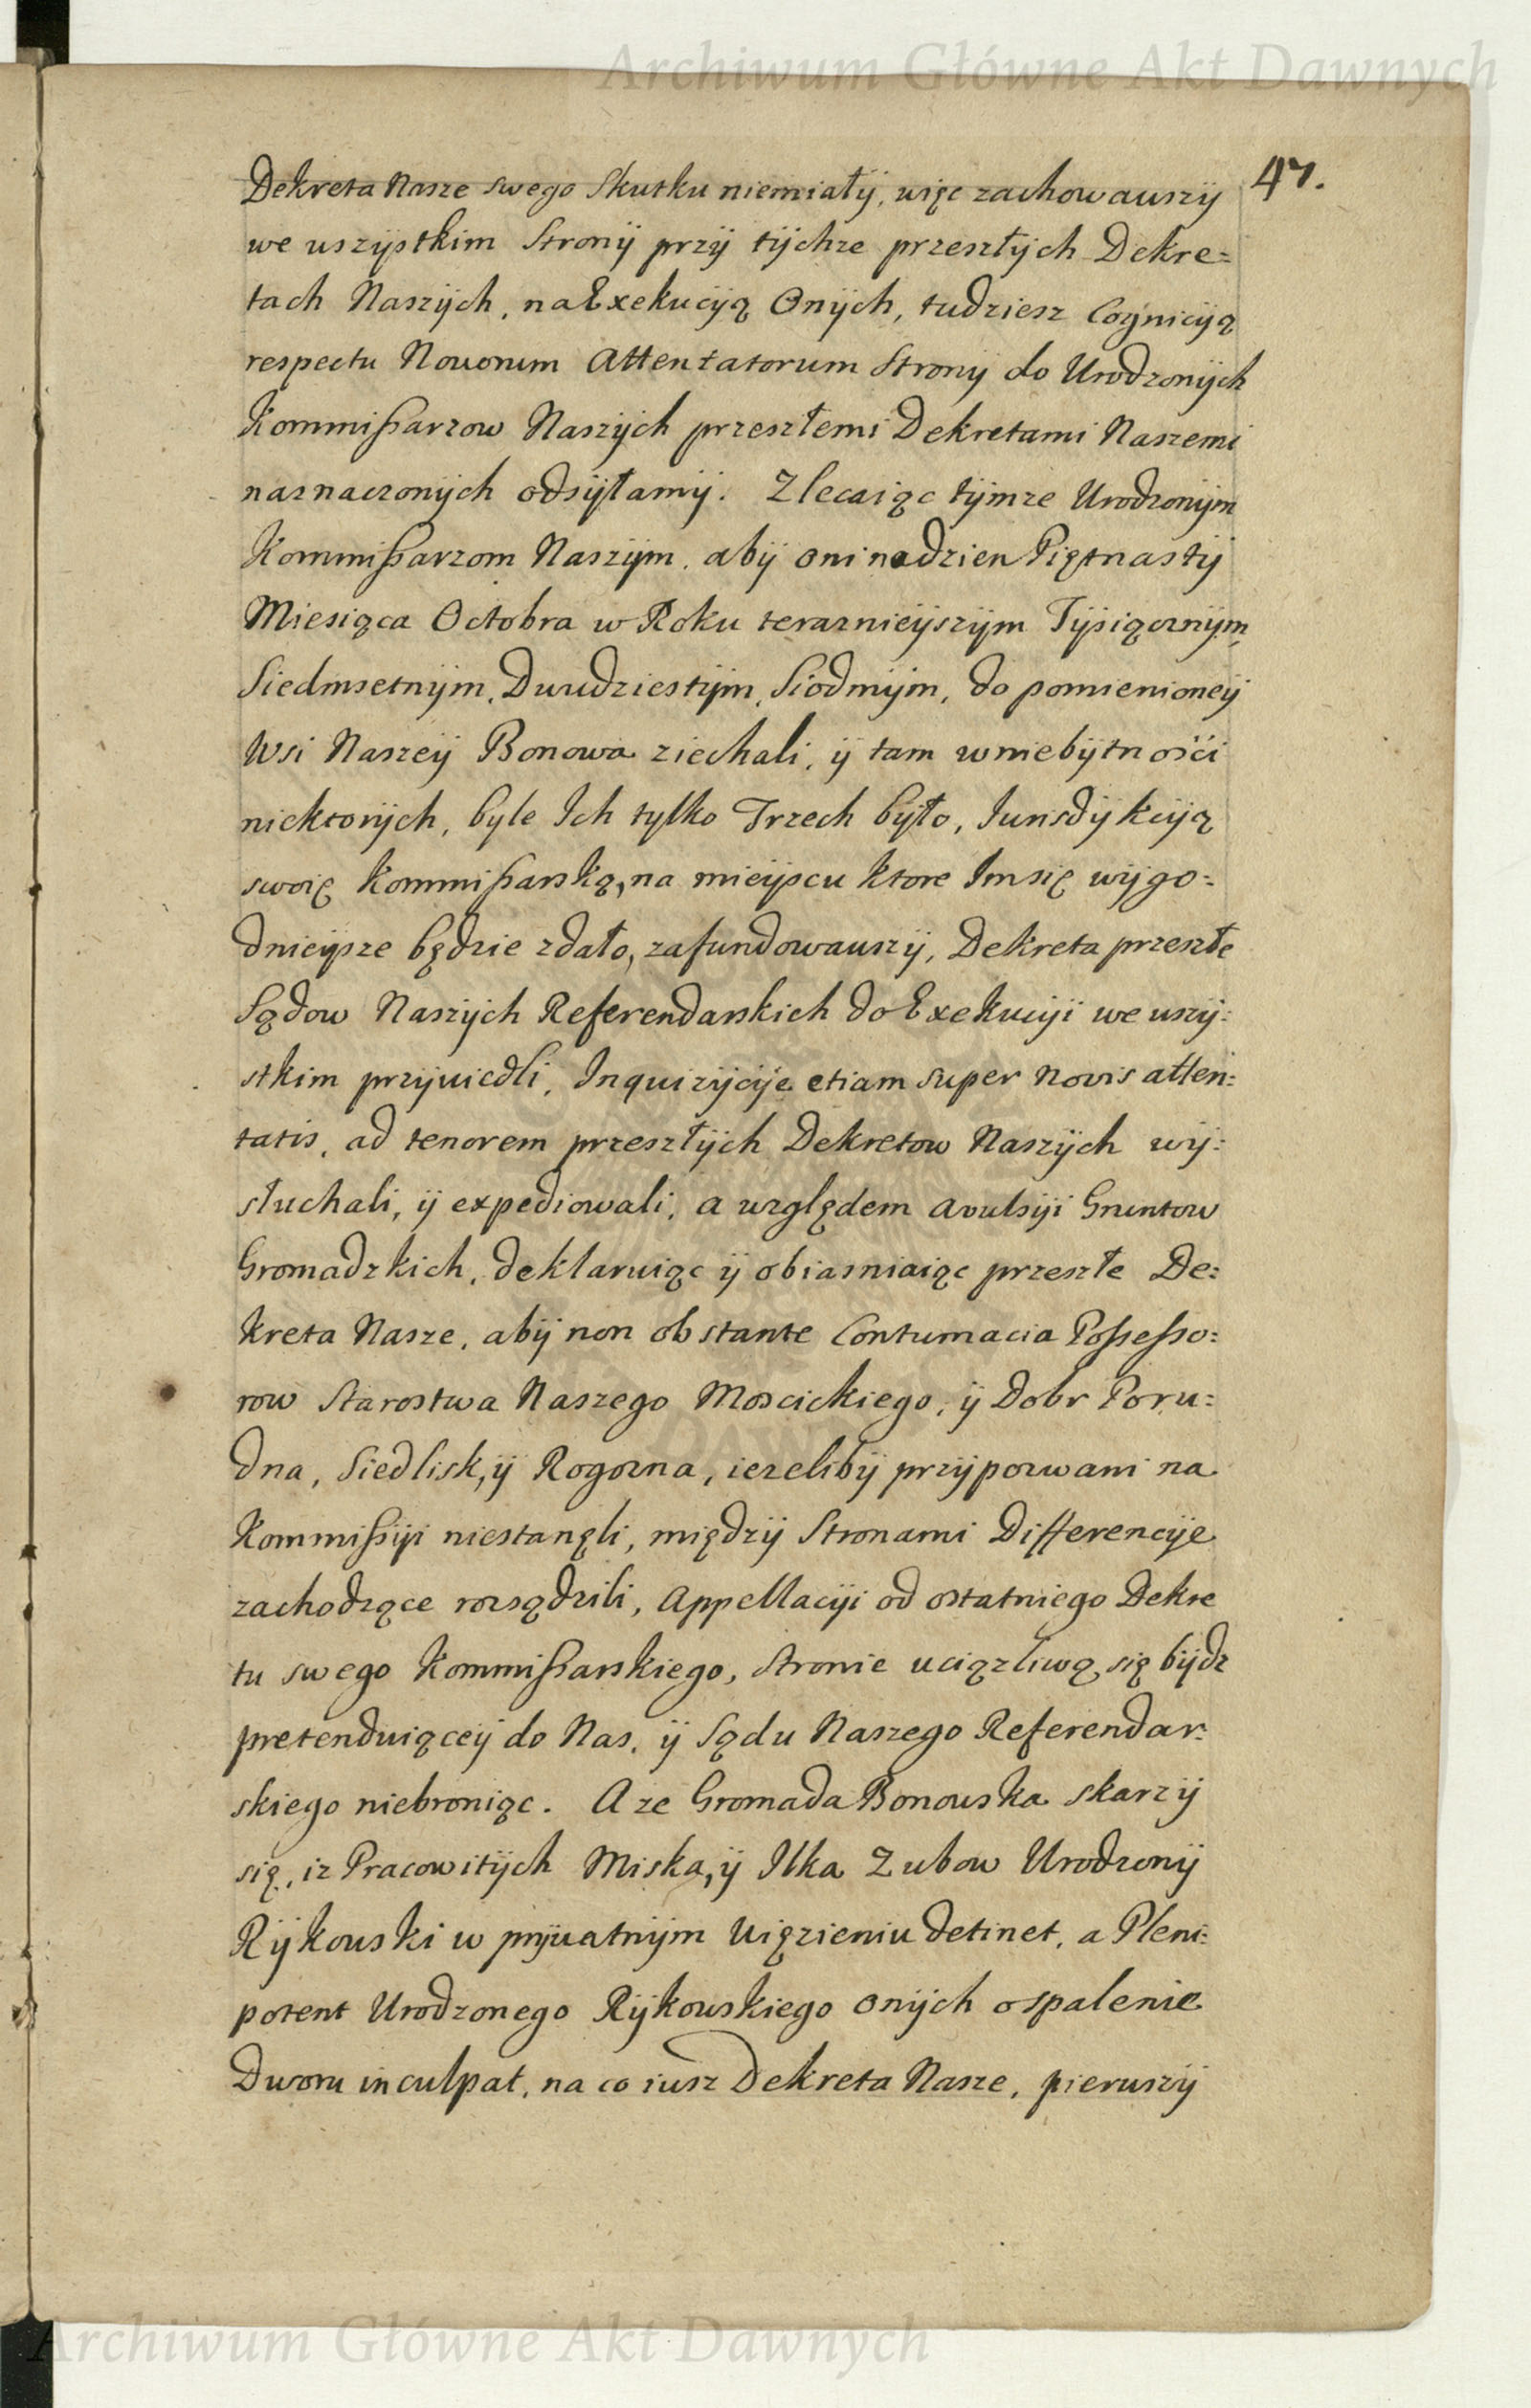 Archiwum Główne Akt Dawnych
47.
Dekreta Nasze swego Skutku niemiałÿ, więc zachowawszÿ
we wszÿstkim Stronÿ przÿ tÿchze przeszłÿch Dekre=
tach Naszÿch, na Exekucÿą Onÿch, tudziesz Cognicÿą
respectu Novorum Attentatorum Stronÿ do Urodzonÿch
Kommißarzow Naszÿch przeszłemi Dekretami Naszemi
naznaczonÿch odsÿłamÿ. Zlecaiąc tÿmze Urodzonÿm
Kommißarzom Naszÿm, abÿ oni na dzien Piętnastÿ
Miesiąca Octobra w Roku teraznieÿszÿm Tÿsiącznÿm,
Siedmsetnÿm, Dwudziestÿm, Siodmÿm, do pomienioneÿ
Wsi Naszeÿ Bonowa ziechali, ÿ tam w niebÿtności
niektorÿch, byle Ich tylko Trzech bÿło, Iurisdÿkcÿą
swoię Kommißarską, na mieÿscu ktore Im się wÿgo=
dnieÿsze będzie zdało, zafundowawszÿ, Dekreta przeszłe
Sądow Naszÿch Referendarskich do Exekucÿi we wszÿ=
stkim przÿwiedli, Inquizÿcÿe etiam super novis atten=
tatis, ad tenorem przeszłÿch Dekretow Naszÿch wÿ=
słuchali, ÿ expediowali, a względem avulsÿi Gruntow
Gromadzkich, deklaruiąc ÿ obiasniaiąc przeszłe De=
kreta Nasze, abÿ non obstante Contumacia Poßeßo=
row Starostwa Naszego Moscickiego, ÿ Dobr Poru=
dna, Siedlisk, ÿ Rogozna, iezelibÿ przÿpozwani na
Kommißÿi niestanęli, międzÿ Stronami Differencÿe
zachodzące rozsądzili, Appellacÿi od ostatniego Dekre
tu swego Kommißarskiego, Stronie uciązliwą się bÿdz
pretenduiąceÿ do Nas, ÿ Sądu Naszego Referendar=
skiego niebroniąc. A ze Gromada Bonowska skarzÿ
się, iz Pracowitÿch Miska, ÿ Ilka Zubow Urodzonÿ
Rÿkowski w prÿwatnÿm więzieniu detinet, a Pleni=
potent Urodzonego Rÿkowskiego onÿch o spalenie
Dworu inculpat, na co iusz Dekreta Nasze, pierwszÿ
Archiwum Główne Akt Dawnych